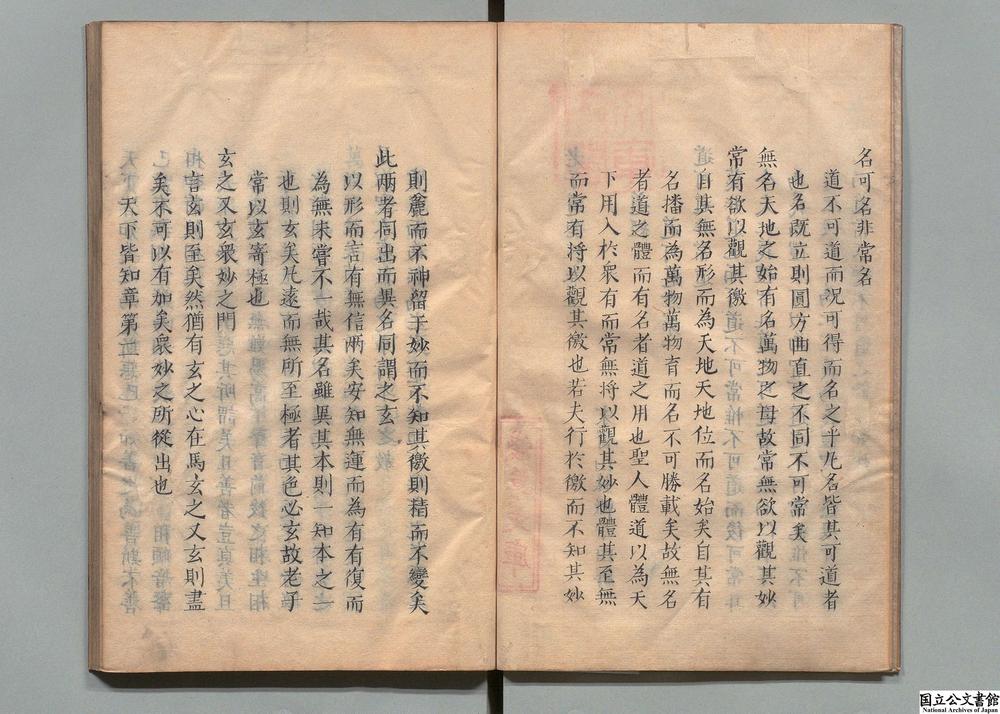 名可名非常名
道不可道而況可得而名之乎凡名皆其可道者
也名既立則圓方曲直之不同不可常矣
無名天地之始有名萬物之母故常無欲以觀其妙
常有欲以觀其徼
自其無名形而為天地天地位而名始矣自其有
名播而為萬物萬物育而名不可勝載矣故無名
者道之體而有名者道之用也聖人體道以為天
下用入於衆有而常無將以觀其妙也體其至無
而常有將以觀其徼也若夫行於徼而不知其妙
則麁而不神留于妙而不知其徼則精而不變矣
此兩者同出而異名同謂之玄
以形而言有無信兩矣安知無運而為有有復而
為無未嘗不一哉其名雖異其本則一知本之一
也則玄矣凡遠而無所至極者其色必玄故老子
常以玄寄極也
玄之又玄衆妙之門
言玄則至矣然猶有玄之心在焉玄之又玄則盡
矣不可以有加矣衆妙之所從出也
天下皆知章第二
国立公文書館
National Archives of Japan